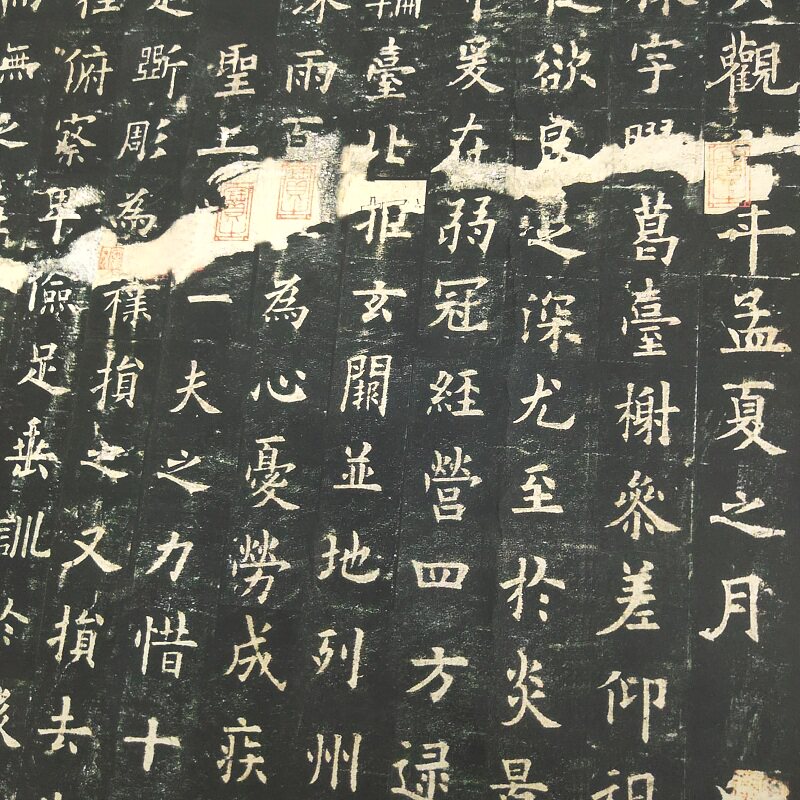 觀年孟夏之月
宇葛臺榭參差仰
欲良足深尤至於炎景
爰在弱冠經營四方逯
臺北拒玄闕並地列州
雨百為心憂勞成疾
聖上一夫之力惜十
斲彫為樸損之又損去
俯察卑儉足垂訓於
無之